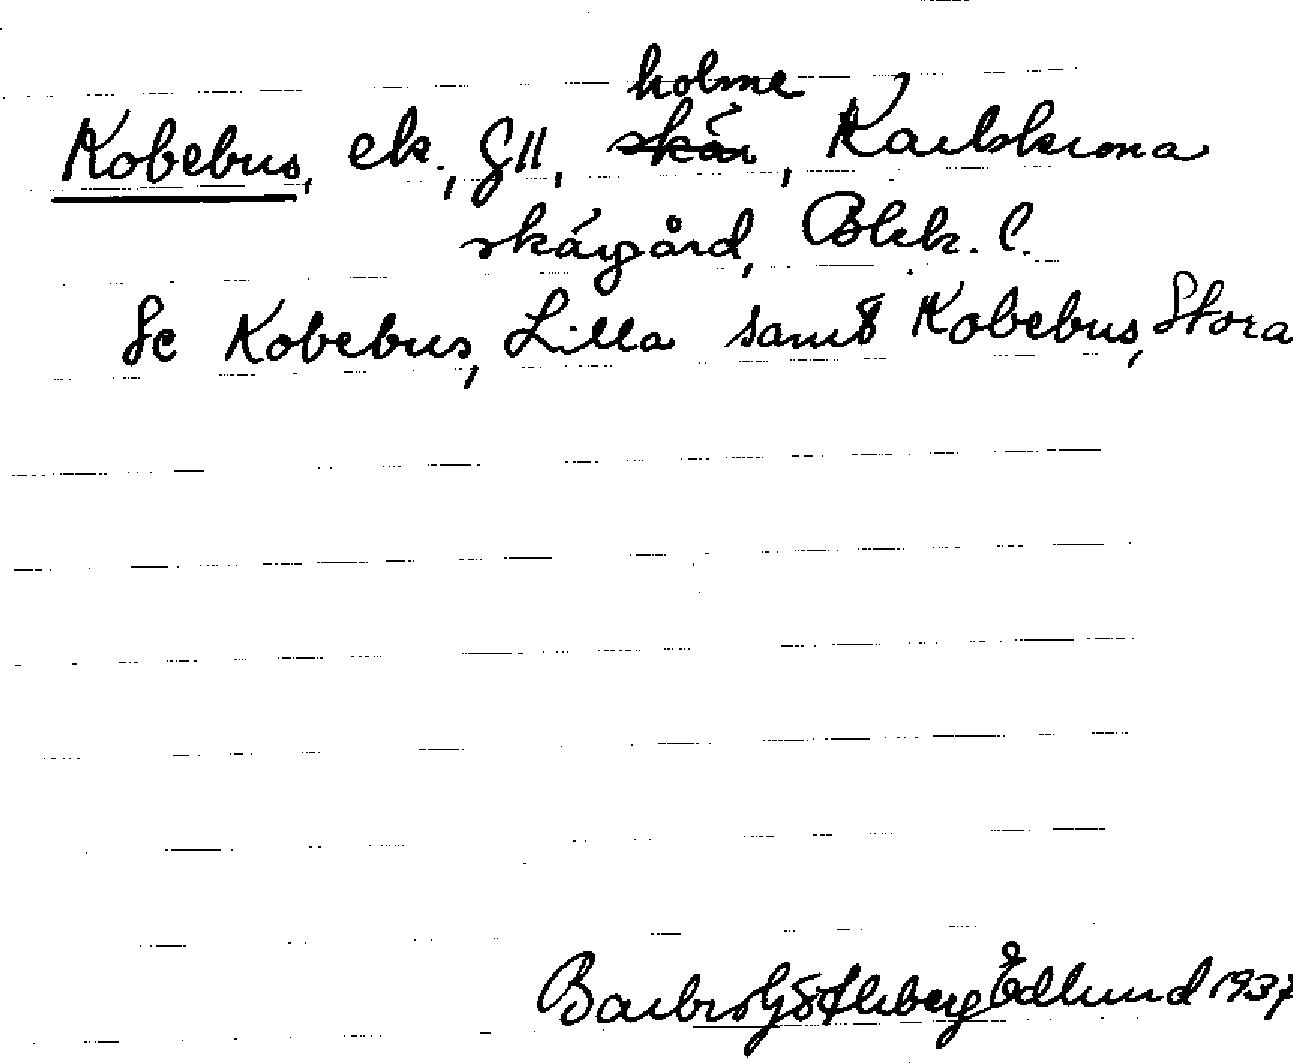 holme
Kobebus, ek., gll, skär, Karlskrona
skärgård, Blek. l.
Se Kobebus, Lilla samt Kobebus, Stora
Barbro Götleberg Edlund 1937